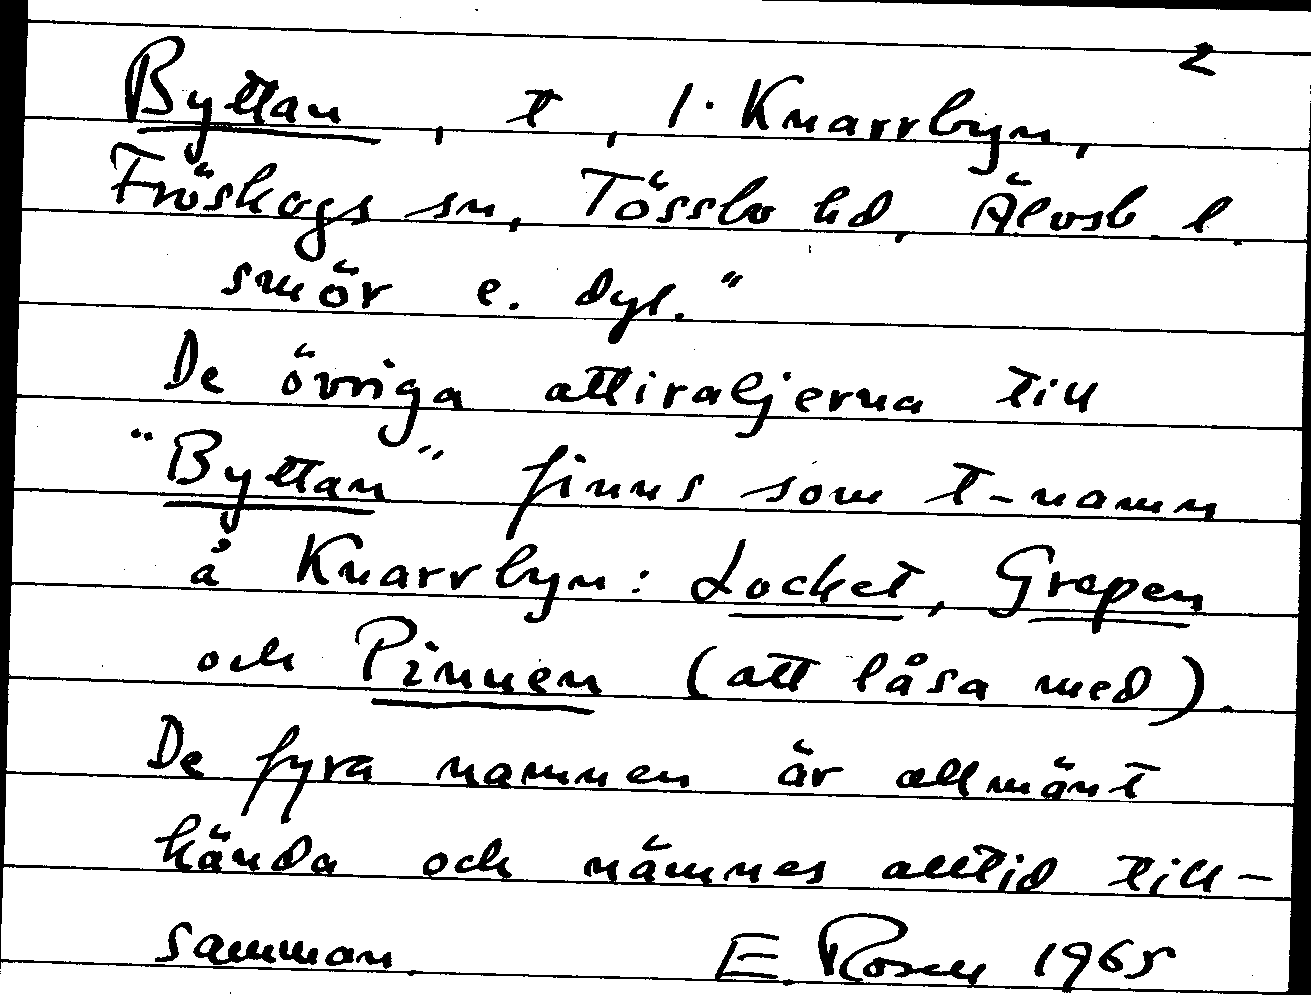 2
Byttan, t, 1. Knarrbyn,
Fröskogs sn, Tössbo hd, Älvsb. l.
smör e. dyl."
De övriga attiraljerna till
"Byttan" finns som t-namn
å Knarrbyn: Locket, Grepen
och Pinnen (att låsa med).
De fyra namnen är allmänt
kända och nämnes alltid till-
samman. E. Rosen 1965